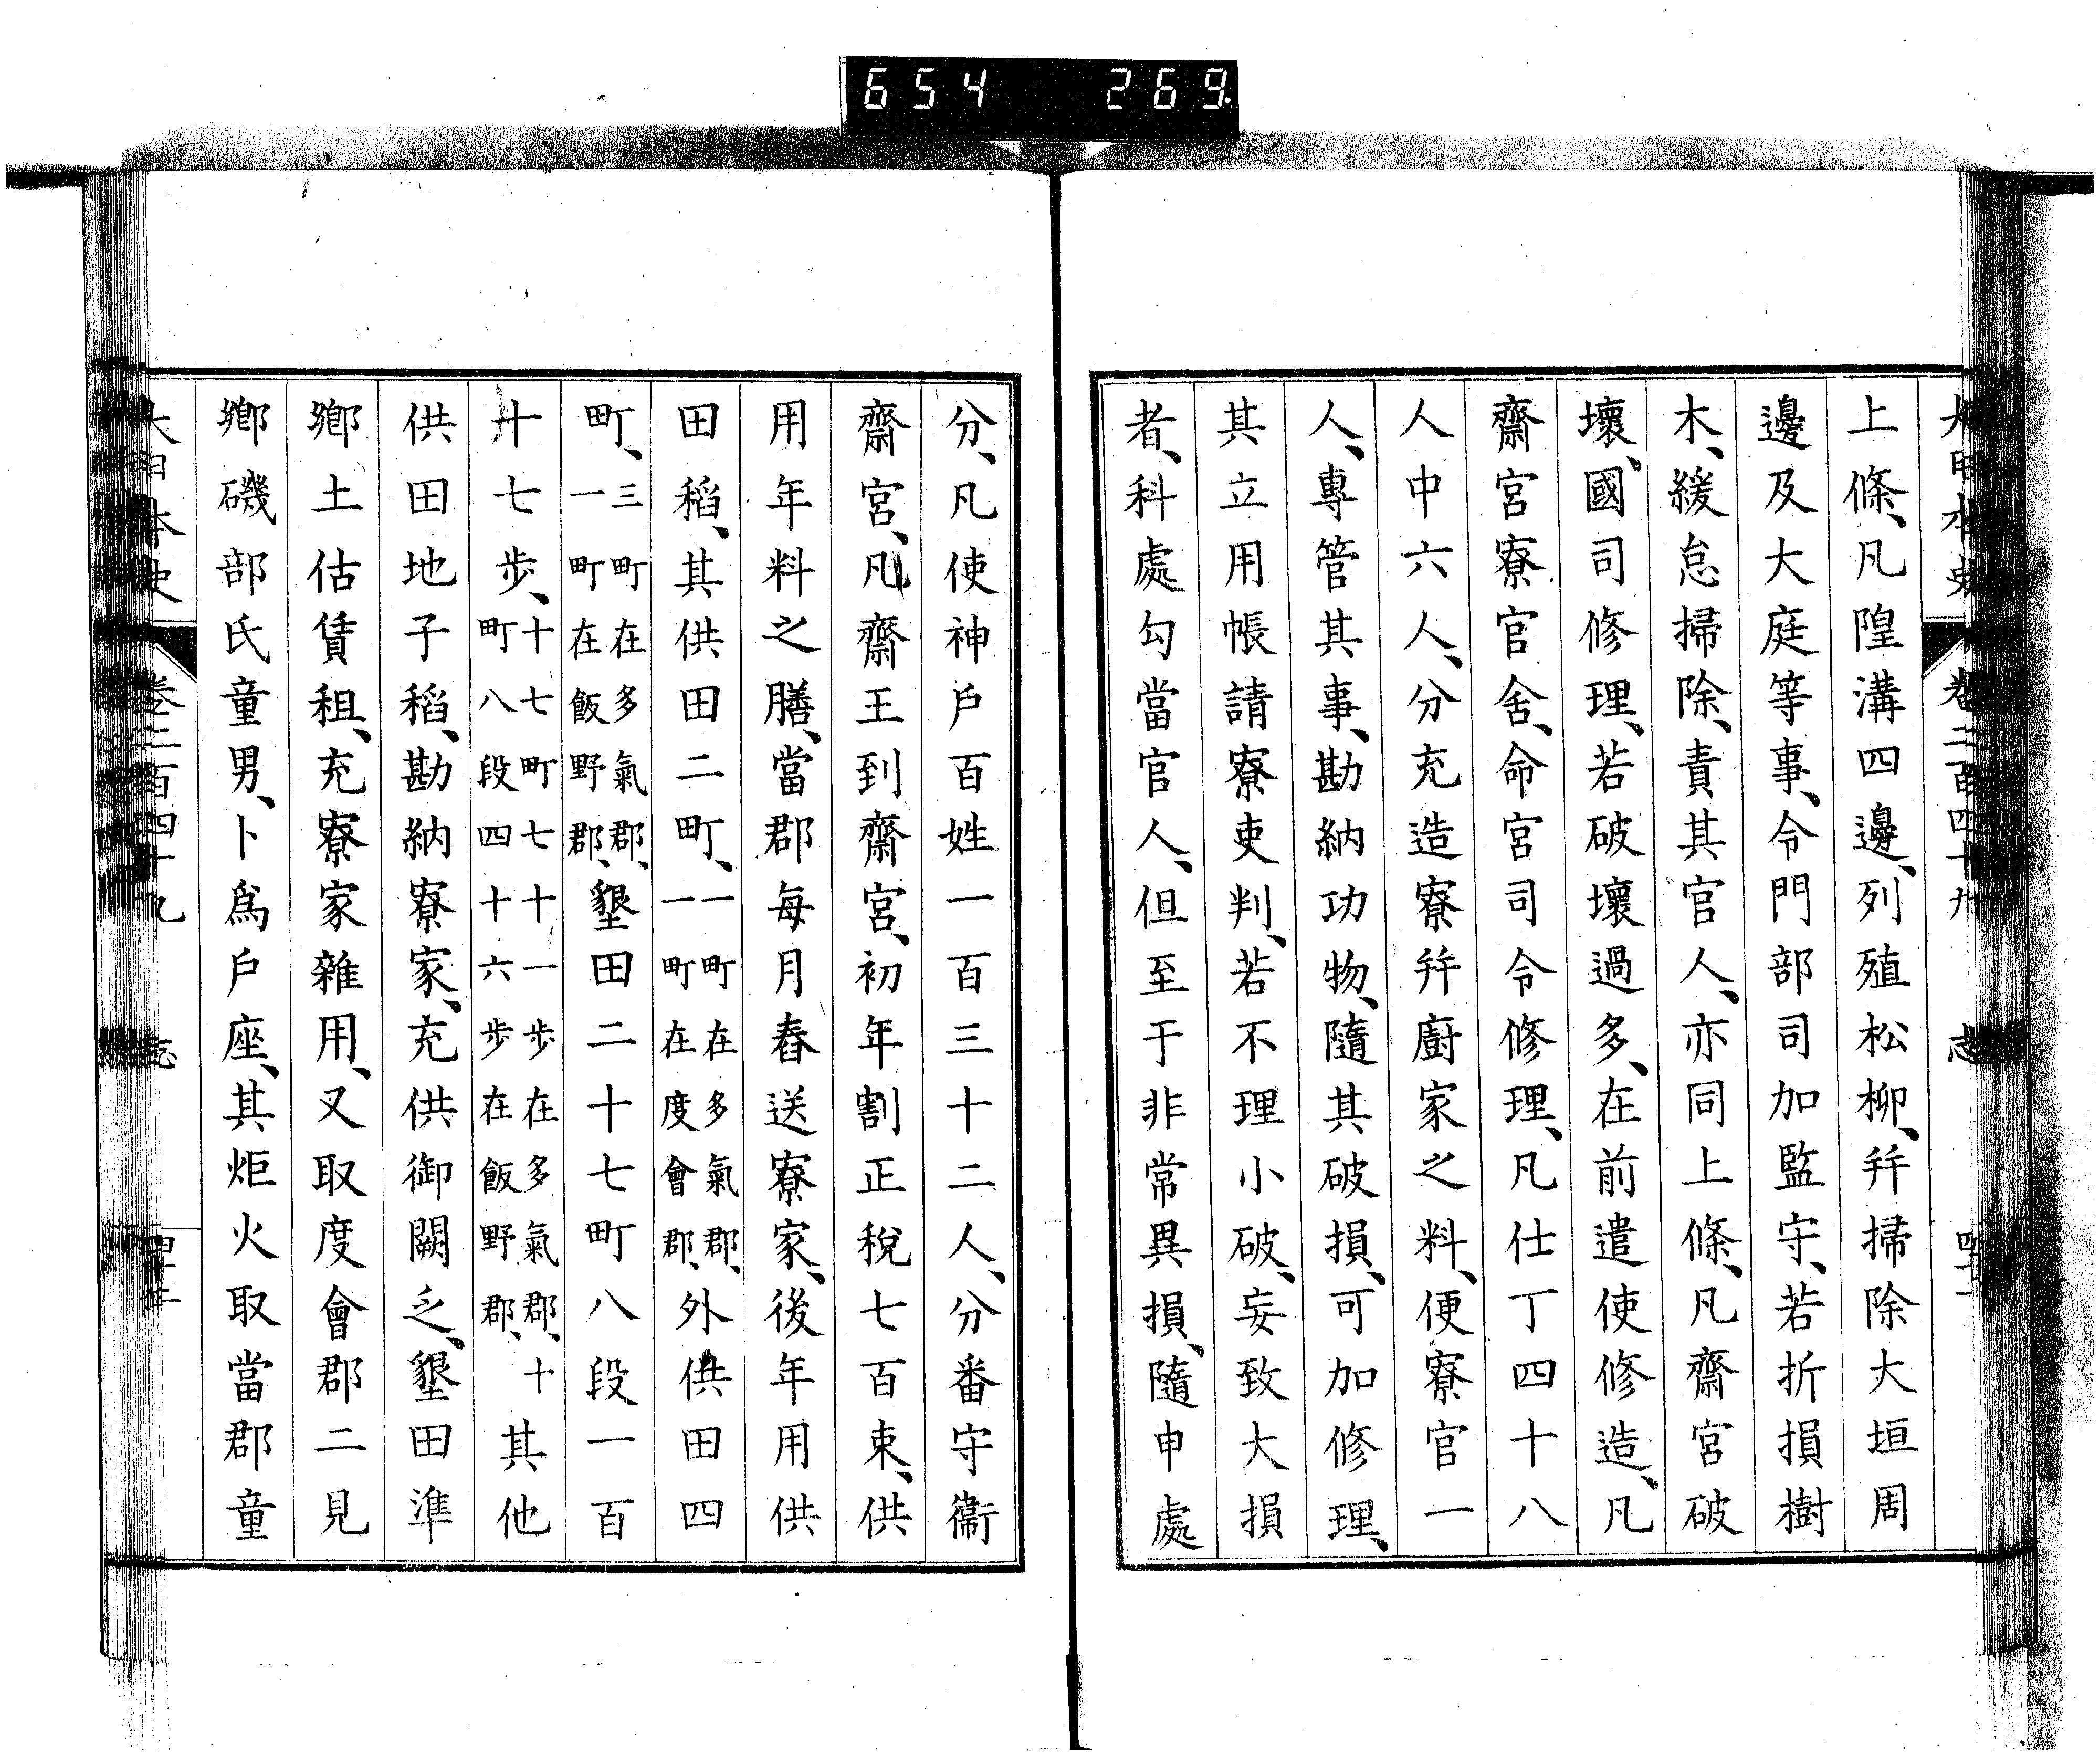 654 269
大日本史 卷二百四十九 志
上條、凡隍溝四邊、列殖松柳、幷掃除大垣周
邊及大庭等事、令門部司加監守、若折損樹
木、緩怠掃除、責其官人、亦同上條、凡齋宮破
壞、國司修理、若破壞過多、在前遣使修造、凡
齋宮寮官舍、命宮司令修理、凡仕丁四十八
人中六人、分充造寮幷廚家之料、便寮官一
人、專管其事、勘納功物、隨其破損、可加修理、
其立用帳請寮吏判、若不理小破、妄致大損
者、科處勾當官人、但至于非常異損、隨申處
分、凡使神戶百姓一百三十二人、分番守衞
齋宮、凡齋王到齋宮、初年割正稅七百束、供
用年料之膳、當郡每月舂送寮家、後年用供
田稻、其供田二町、一町在多氣郡、一町在度會郡、外供田四
町、三町在多氣郡、一町在飯野郡、墾田二十七町八段一百
廿七步、十七町七十一步在多氣郡、十町八段四十六步在飯野郡、其他
供田地子稻、勘納寮家、充供御闕乏、墾田準
鄉土估賃租、充寮家雜用、又取度會郡二見
鄉磯部氏童男、卜爲戶座、其炬火取當郡童
大日本史 卷二百四十九 志